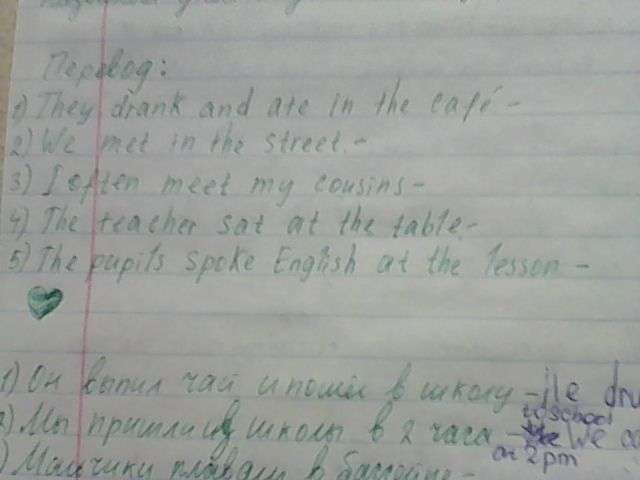 Перевод:
1) They drank and ate in the café -
2) We met in the street. -
3) I often meet my cousins -
4) The teacher sat at the table. -
5) The pupils spoke English at the lesson -
1) Он выпил чай и пошёл в школу - He
to school
2) Мы пришли из школы в 2 часа - We
2 pm
) Мальчики плавали в бассейне -